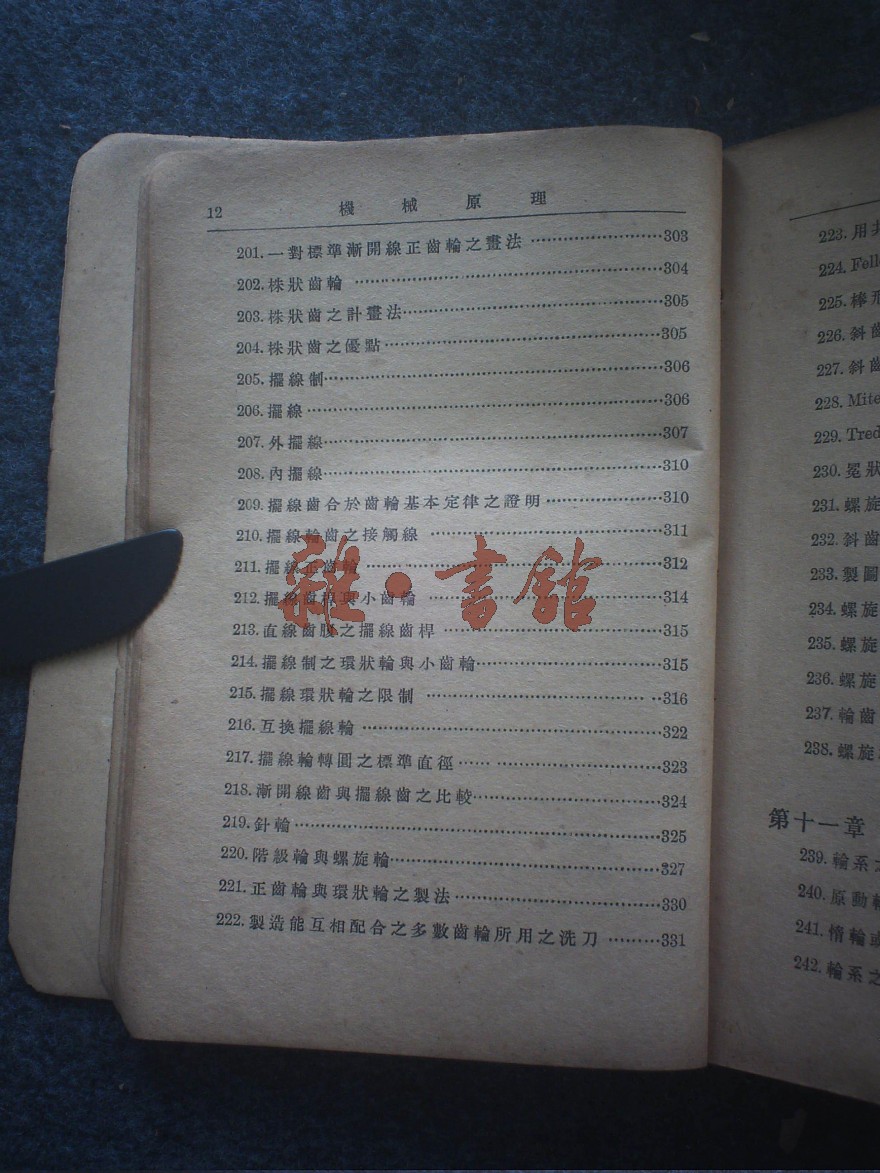 12 機械原理
201. 一對標準漸開線正齒輪之畫法 ………………303
202. 株狀齒輪 ………………304
203. 株狀齒之計畫法………………305
204. 株狀齒之優點………………305
205. 擺線制………………306
206. 擺線………………306
207. 外擺線………………307
208. 內擺線………………310
209. 擺線齒合於齒輪基本定律之證明………………310
210. 擺線輪齒之接觸線 ………………311
211. 擺線正齒輪 ………………312
212. 擺線齒桿與小齒輪 ………………314
213. 直線齒腹之擺線齒桿 ………………315
214. 擺線制之環狀輪與小齒輪………………315
215. 擺線環狀輪之限制 ………………316
216. 互換擺線輪 ………………322
217. 擺線輪轉圓之標準直徑………………323
218. 漸開線齒與擺線齒之比較………………324
219. 針輪………………325
220. 階級輪與螺旋輪………………327
221. 正齒輪與環狀輪之製法………………330
222. 製造能互相配合之多數齒輪所用之洗刀 ………331
雜·書館
223. 用
224. Fell
225. 棒
226. 斜齒
227. 斜齒
228. Mite
229. Tred
230. 冕狀
231. 螺旋
232. 斜齒
233. 製圖
234. 螺旋
235. 螺旋
236. 螺旋
237. 輪齒
238. 螺旋
第十一章
239. 輪系之
240. 原動輪
241. 惰輪或
242. 輪系之